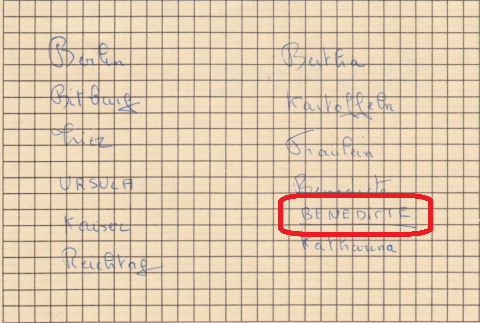 Berlin
Bitburg
Trier
URSULA
Kaiser
Reichtag
Bertha
Kartoffeln
Fraulein
Benedicte
BENEDICTE
Katharina